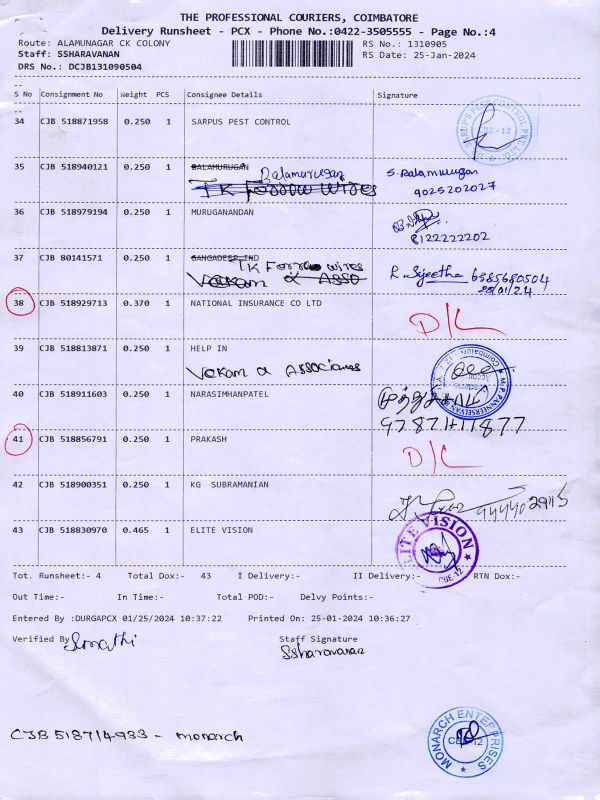 THE PROFESSIONAL COURIERS, COIMBATORE
Delivery Runsheet - PCX - Phone No.:0422-3505555 - Page No.:4
Route: ALAMUNAGAR CK COLONY RS No.: 1310905
Staff: SSHARAVANAN RS Date: 25-Jan-2024
DRS No.: DCJB131090504
S No Consignment No Weight PCS Consignee Details Signature
34 CJB 518871958 0.250 1 SARPUS PEST CONTROL
CBE-12
35 CJB 518940121 0.250 1 BALAMURUGAN Balamurugan S. Balamurugan
TK Ferrow wires 9025202027
36 CJB 518979194 0.250 1 MURUGANANDAN
8122222202
37 CJB 80141571 0.250 1 GANGADEEP IND TK Ferrow wires
Vekam & Asso R. Sijeetha 6385680504
25/01/24
38 CJB 518929713 0.370 1 NATIONAL INSURANCE CO LTD D/L
39 CJB 518813871 0.250 1 HELP IN
Vekam & Associates
40 CJB 518911603 0.250 1 NARASIMHANPATEL
41 CJB 518856791 0.250 1 PRAKASH D/L
42 CJB 518900351 0.250 1 KG SUBRAMANIAN
43 CJB 518830970 0.465 1 ELITE VISION
ELITE VISION
CBE-12
Tot. Runsheet:- 4 Total Dox:- 43 I Delivery:- II Delivery:- RTN Dox:-
Out Time:- In Time:- Total POD:- Delvy Points:-
Entered By :DURGAPCX 01/25/2024 10:37:22 Printed On: 25-01-2024 10:36:27
Verified By Staff Signature
Ssharavanan
CJB 518714933 - monarch
MONARCH ENTERPRISES
CBE-12